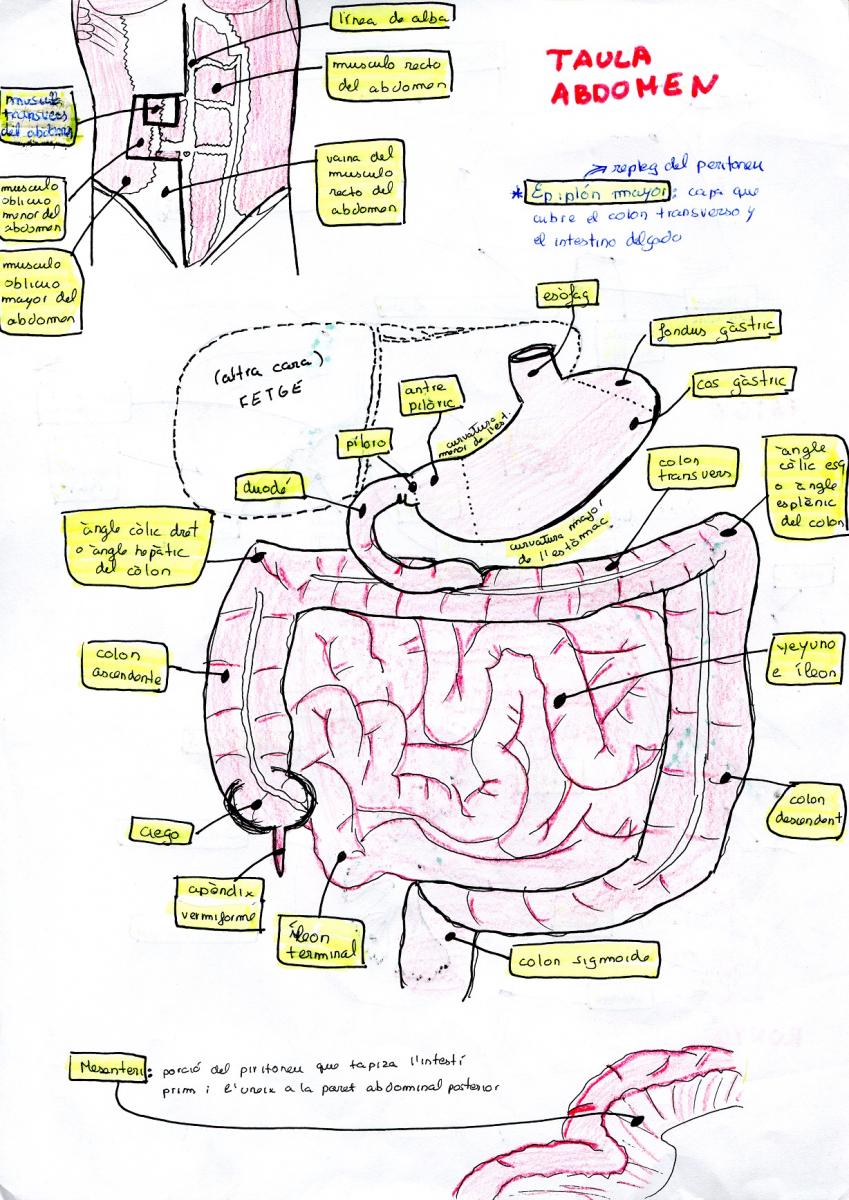 TAULA
ABDOMEN
línea de alba
musculo recto
del abdomen
musculo
transvers
del abdomen
vaina del
musculo
recto del
abdomen
musculo
oblicuo
menor del
abdomen
musculo
oblicuo
mayor del
abdomen
repleg del peritoneu
* Epiplón mayor: capa que
cubre el colon transverso y
el intestino delgado
esòfag
fondus gàstric
cos gàstric
(altra cara)
FETGE
antre
pilòric
píloro
curvatura
menor de l'est.
duodé
colon
transvers
àngle
còlic esq
o àngle
esplènic
del colon
curvatura major
de l'estòmac
àngle còlic dret
o àngle hepàtic
del còlon
colon
ascendente
yeyuno
e íleon
colon
descendent
ciego
apèndix
vermiforme
íleon
terminal
colon sigmoide
Mesenteri: porció del piritoneu que tapiza l'intestí
prim i l'uneix a la paret abdominal posterior